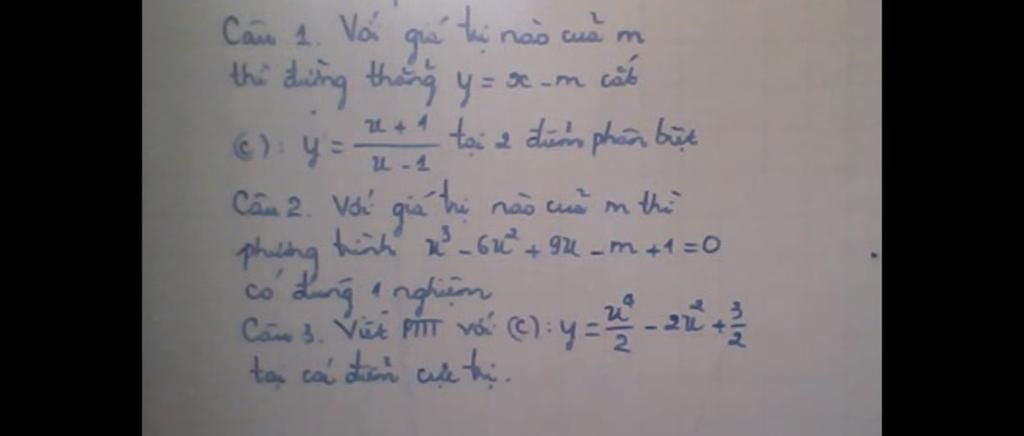 Câu 1. Với giá trị nào của m
thì đường thẳng y = x - m cắt
(C): y = \frac{x + 1}{x - 1} tại 2 điểm phân biệt
Câu 2. Với giá trị nào của m thì
phương trình x³ - 6x² + 9x - m + 1 = 0
có đúng 1 nghiệm
Câu 3. Viết PTTT với (C): y = \frac{x⁴}{2} - 2x² + \frac{3}{2}
tại các điểm cực trị.